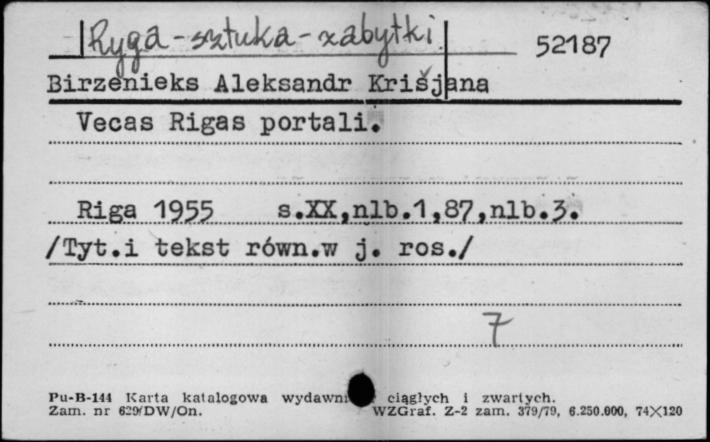 Ryga - sztuka - zabytki
52187
Birzenieks Aleksandr Krišjana
Vecas Rigas portali.
Riga 1955 s.XX,nlb.1,87,nlb.3.
/Tyt.i tekst równ.w j. ros./
7
Pu-B-144 Karta katalogowa wydawni ciągłych i zwartych.
Zam. nr 629/DW/On. WZGraf. Z-2 zam. 379/79, 6.250.000, 74×120